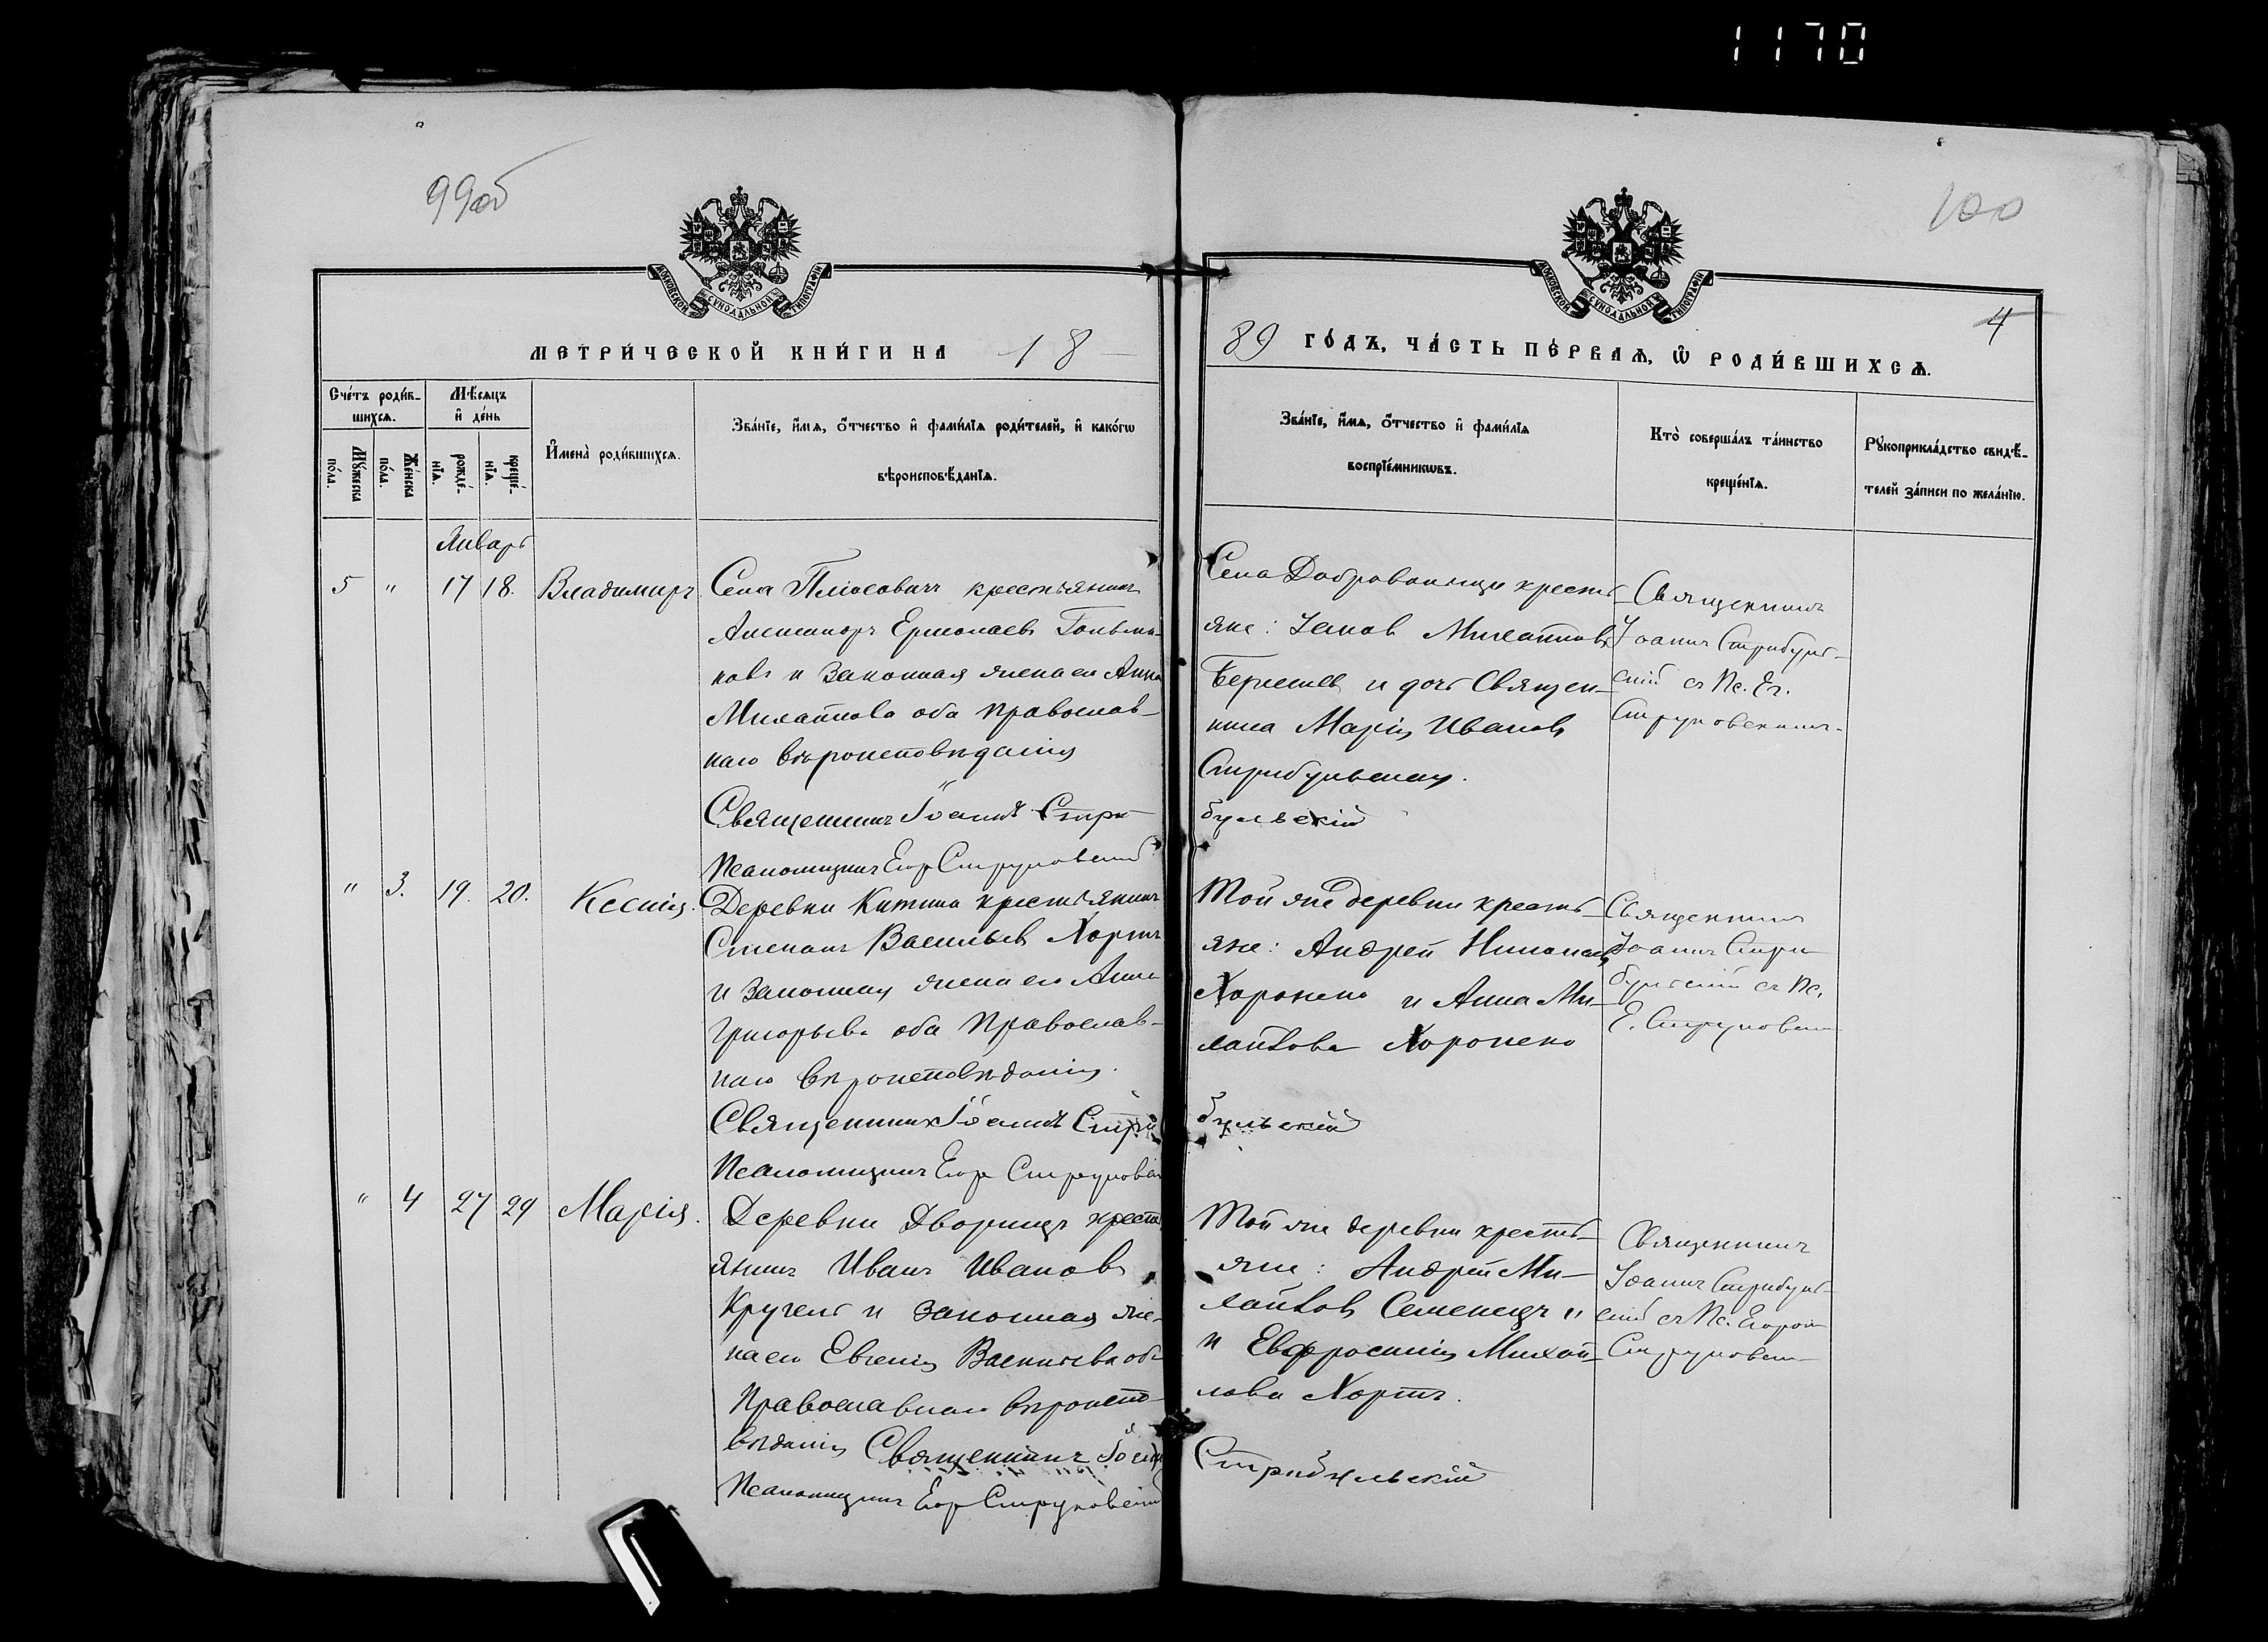 1170
99об
100
МОСКОВСКОЙ СѴНОДАЛЬНОЙ ТИПОГРАФІИ
МОСКОВСКОЙ СѴНОДАЛЬНОЙ ТИПОГРАФІИ
4
МЕТРИ́ЧЕСКОЙ КНИ́ГИ НА 18
89 ГО́ДЪ, ЧА́СТЬ ПЕ́РВАѦ, Ѽ РОДИ́ВШИХСѦ.
Сче́тъ роди́в-
шихсѧ.
Мѣ́сѧцъ
и҆ де́нь
Мꙋ́жеска
по́ла.
Же́нска
по́ла.
рожде́-
нїѧ.
креще́-
нїѧ.
И҆мена̀ роди́вшихсѧ.
Зва́нїе, и҆́мѧ, ѻ҆́тчество и҆ фами́лїѧ роди́телей, и҆ како́гѡ
вѣроисповѣ́данїѧ.
Зва́нїе, и҆́мѧ, ѻ҆́тчество и҆ фами́лїѧ
воспрїе́мникѡвъ.
Кто̀ соверша́лъ та́инство
креще́нїѧ.
Рꙋкоприкла́дство свидѣ́-
телей за́писи по жела́нїю.
Январь
5 " 17 18. Владимиръ
Села Плюсовичъ крестьянинъ
Александръ Ермолаевъ
и законная жена его Анна
Михайлова оба Православ-
наго вѣроисповѣданія
Священникъ Іоаннъ Стри-
Псаломщикъ Егоръ Струковскій
Села крестья-
яне: Михайловъ
и дочь Священ-
ника Марія Иванов
Стрибульская.
бульскій
Священникъ
Іоаннъ Стрибуль-
скій съ Пс. Ег.
" 3. 19. 20. Ксенія.
Деревни крестьянинъ
Степанъ Васильевъ Хортъ
и законная жена его Анна
Григорьева оба Православ-
наго вѣроисповѣданія.
Священникъ Іоаннъ Стри
Псаломщикъ Егоръ
Той же деревни кресть-
яне: Андрей
Хоронеко и Анна Ми-
хайлова Хоронеко
бульскій
Священникъ
Іоаннъ Стри
бульскій съ Пс.
Е.
" 4 27 29 Марія.
Деревни Дворищъ кресть
янинъ Иванъ Ивановъ
Кругель и законная же-
на его Евгенія Васильева оба
Православнаго вѣроиспо-
вѣданія Священникъ Іоаннъ
Псаломщикъ Егоръ Струковскій
Той же деревни кресть-
яне: Андрей Ми-
хайловъ Семенецъ "
и Евфросинія Михай-
лова Хортъ.
Стрибульскій
Священникъ
Іоаннъ Стрибуль-
скій съ Пс. Егоромъ